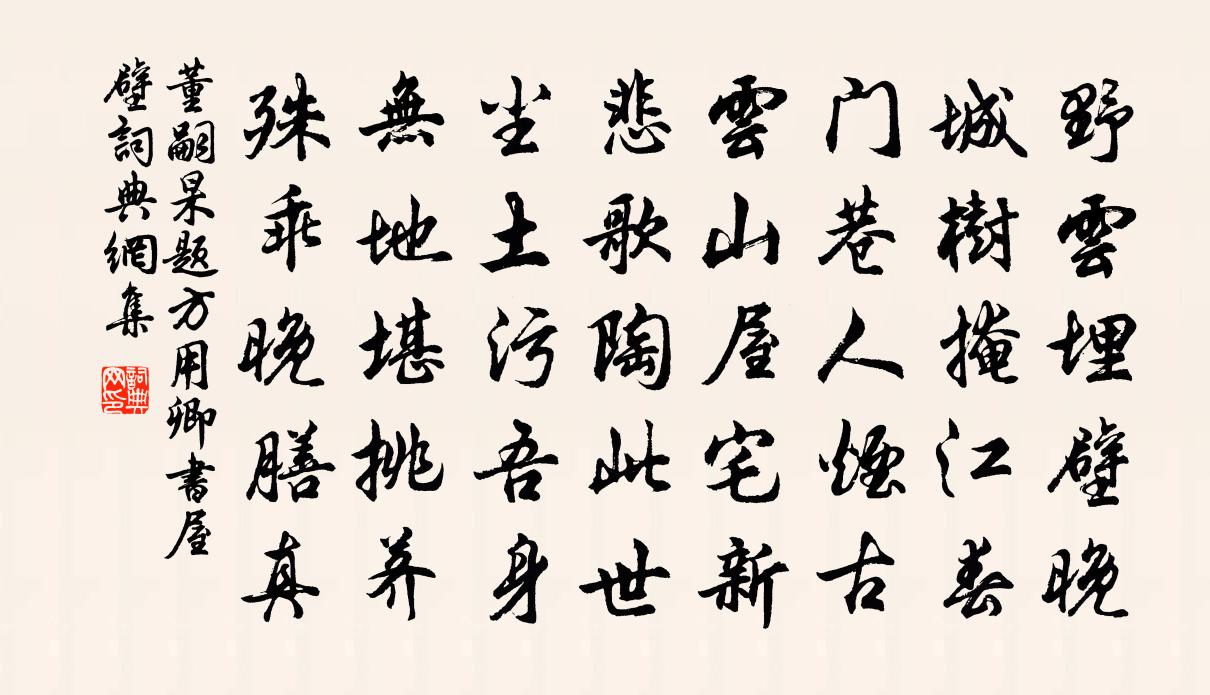 野雲埋壁晚
城樹掩江春
门巷人煙古
雲山屋宅新
悲歌陶此世
尘土污吾身
無地堪挑荠
殊乖晚膳真
董嗣杲题方用卿書屋
壁詞典網集
詞典
网印